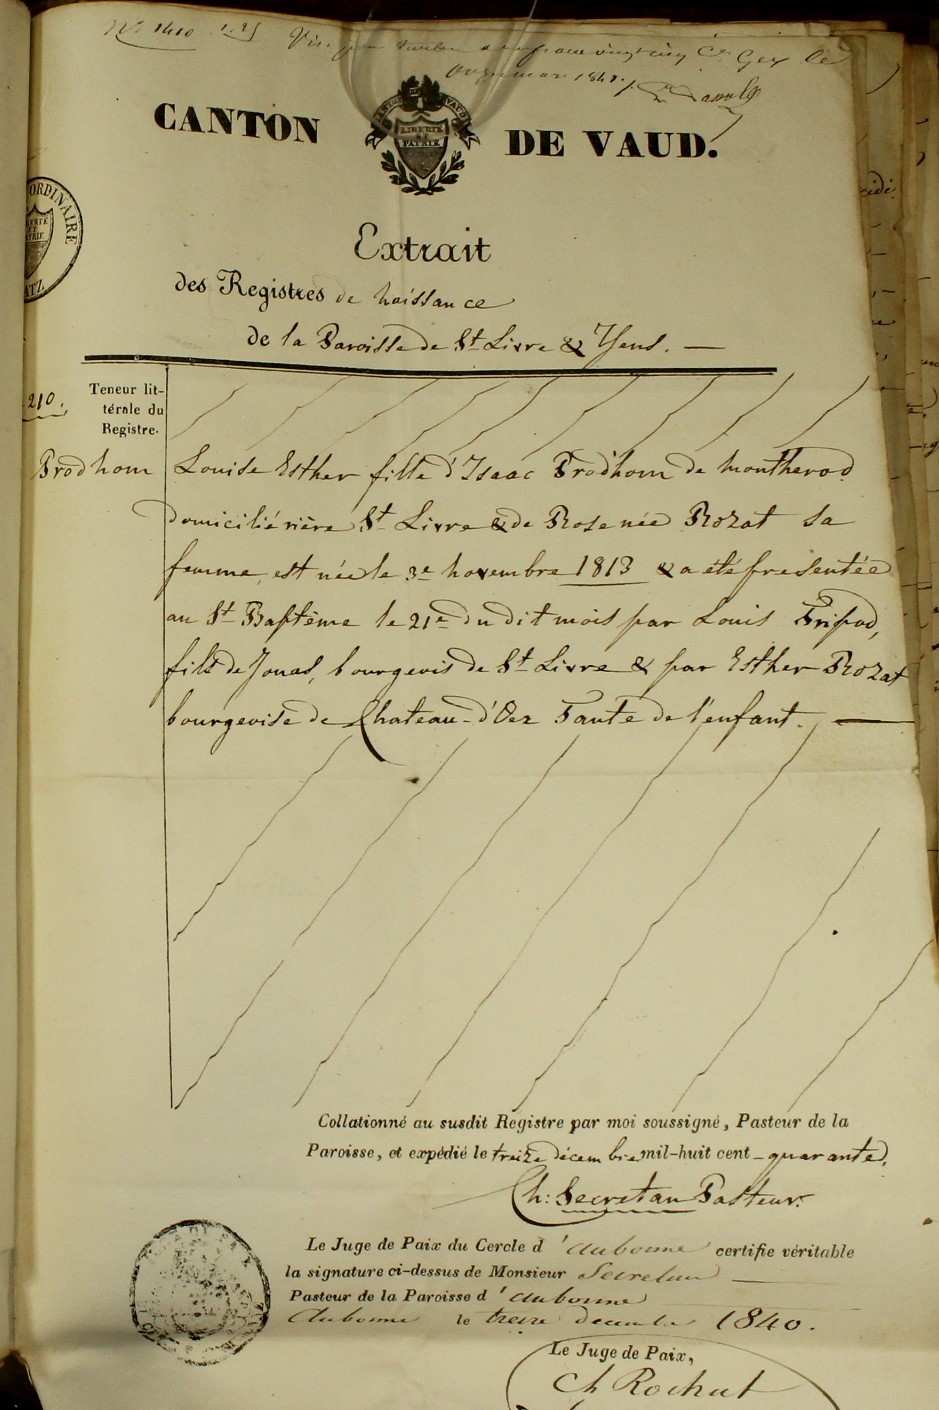 No 1410
Visé pour timbre
1841.
CANTON DE VAUD.
CANTON DE VAUD
LIBERTÉ
ET
PATRIE
ORDINAIRE
Extrait
des Registres de naissance
de la Paroisse de St Livre & Yens. —
210.
Teneur lit-
térale du
Registre.
Prodhom
Louise Esther fille d'Isaac Prodhom de Montherod
domicilié rière St Livre & de Rose née Rozat sa
femme, est née le 3e novembre 1813 & a été presentée
au St Baptême le 21e du dit mois par Louis Tripod,
fils de Jonas, bourgeois de St Livre & par Esther Rozat
bourgeoise de Chateau-d'Oex Tante de l'enfant. —
Collationné au susdit Registre par moi soussigné, Pasteur de la
Paroisse, et expédié le treize décembre mil-huit cent-quarante.
Ch: Secretan Pasteur.
Le Juge de Paix du Cercle d'Aubonne certifie véritable
la signature ci-dessus de Monsieur Secretan
Pasteur de la Paroisse d'Aubonne
Aubonne le treize decembre 1840.
Le Juge de Paix,
Ch Rochat